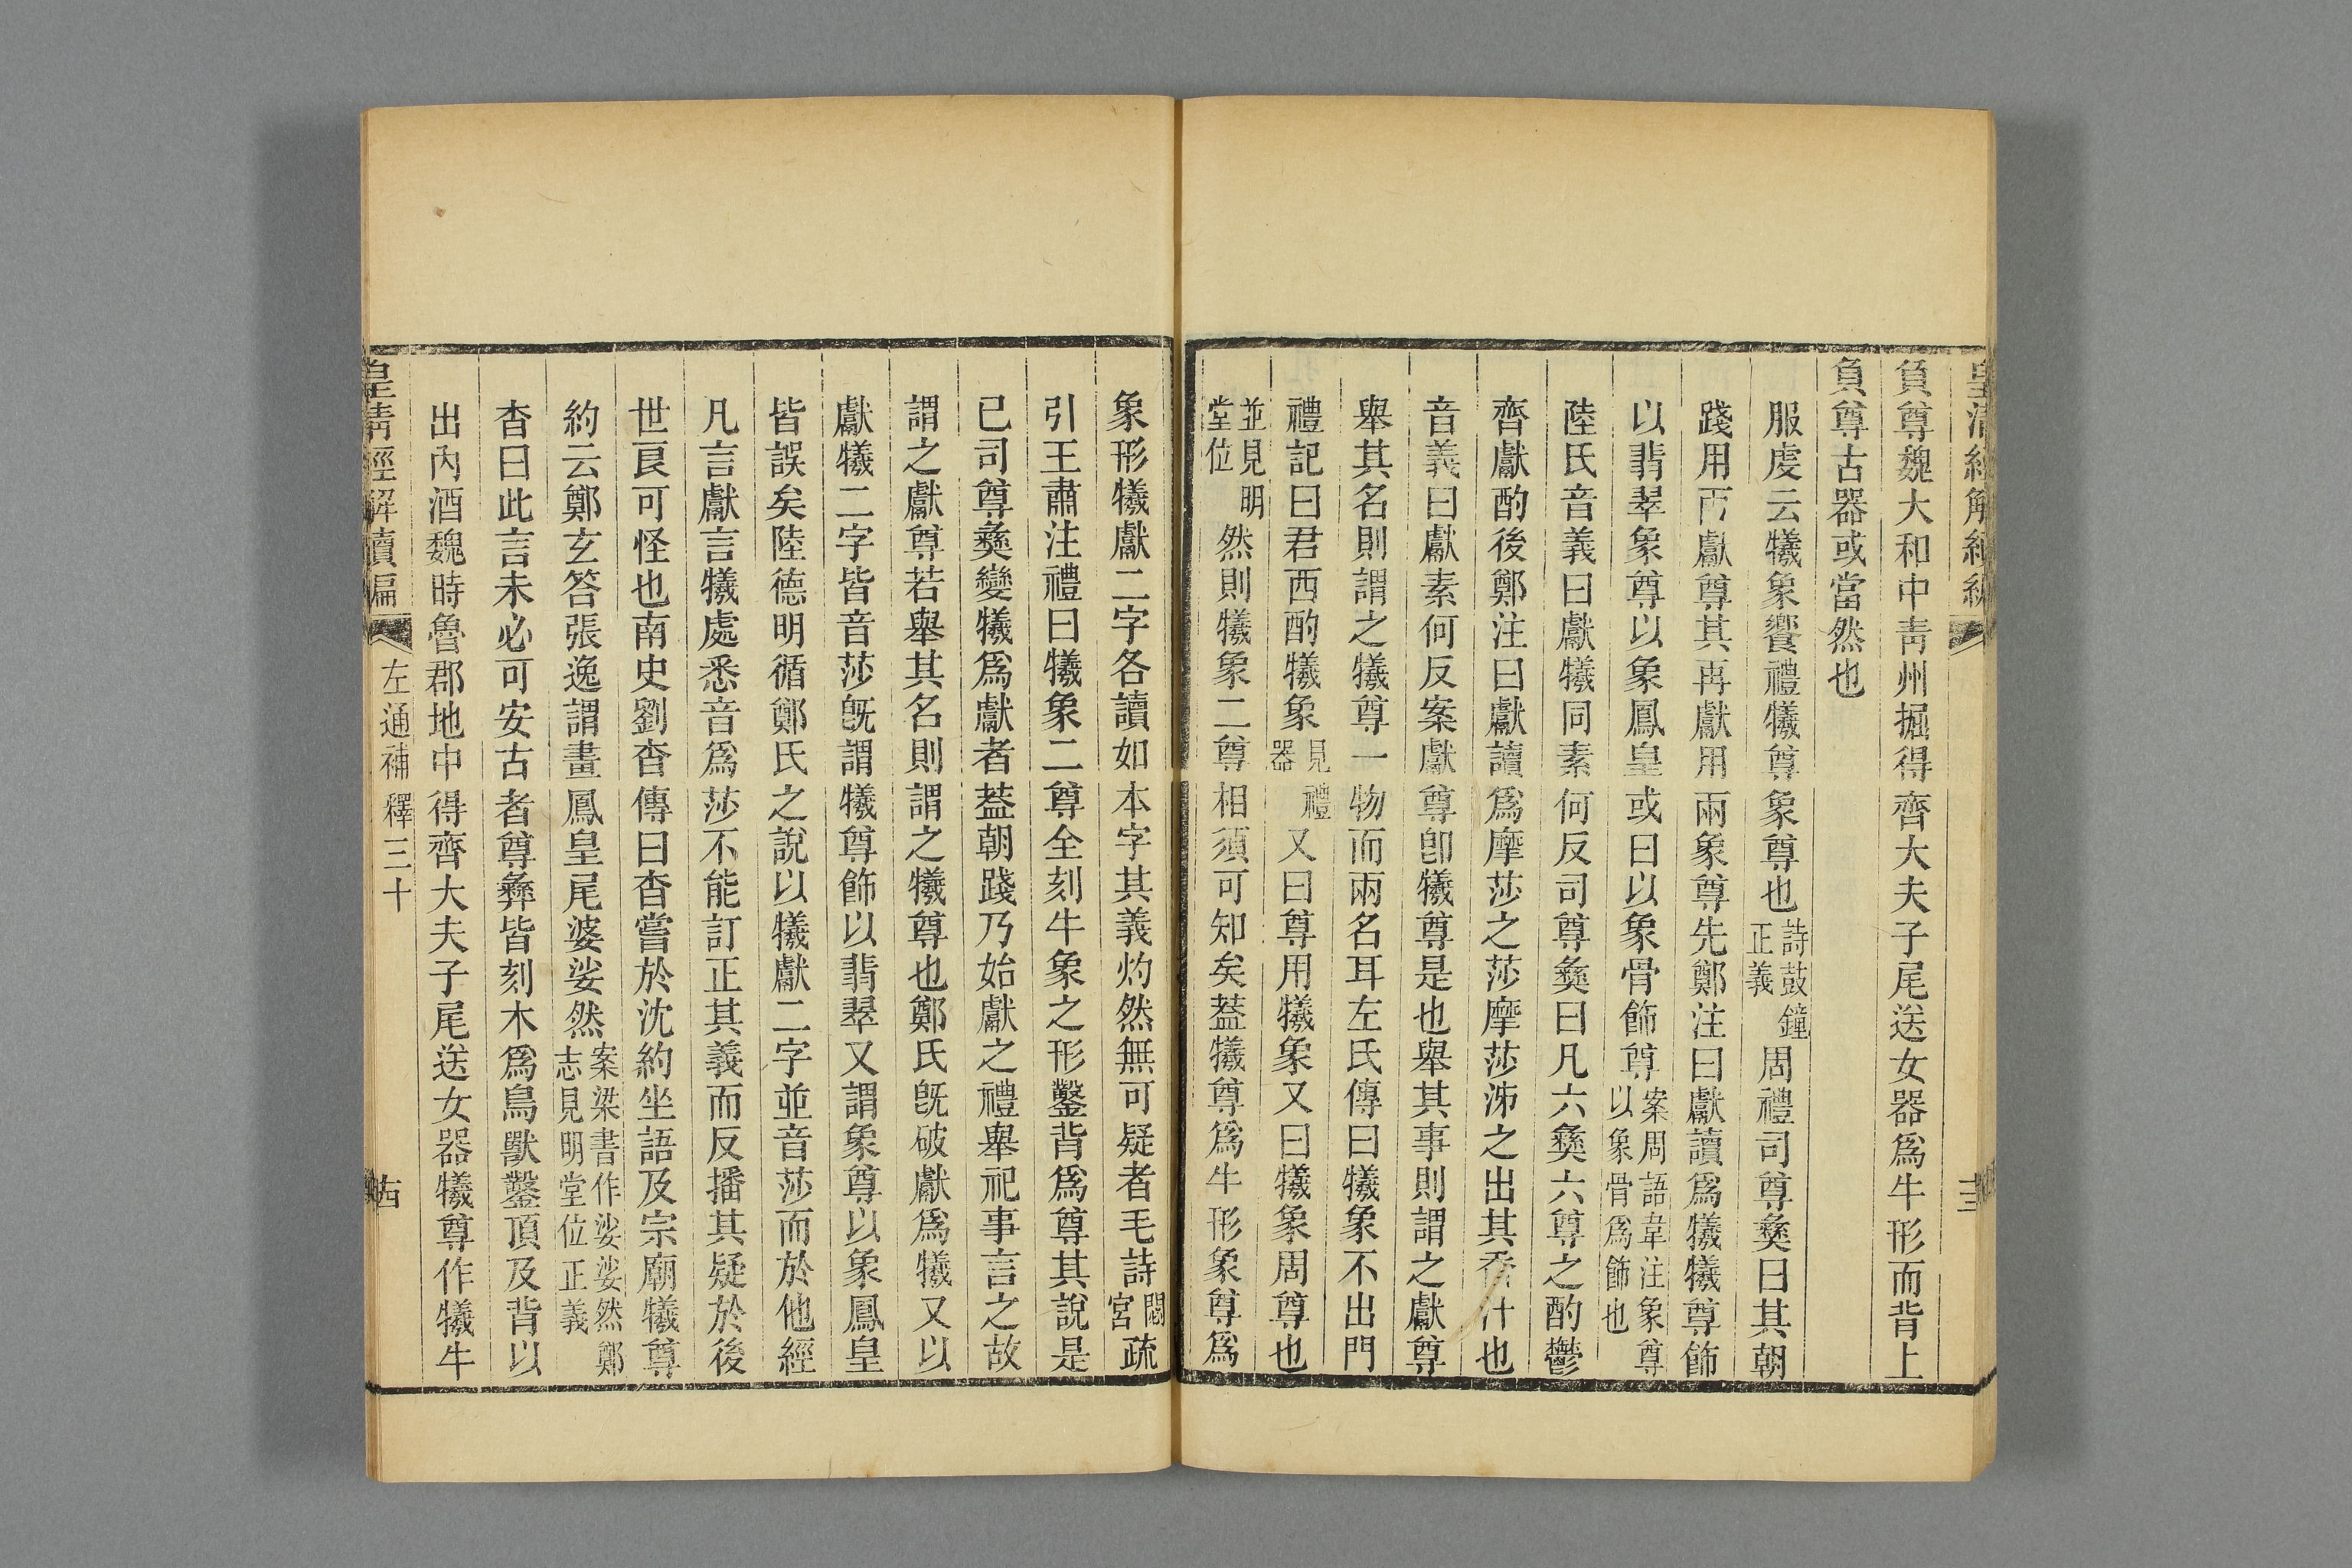 皇清經解續編
十三
負尊魏大和中靑州掘得齊大夫子尾送女器爲牛形而背上
負尊古器或當然也
服虔云犧象饗禮犧尊象尊也詩鼓鐘正義周禮司尊彝曰其朝
踐用兩獻尊其再獻用兩象尊先鄭注曰獻讀爲犧犧尊飾
以翡翠象尊以象鳳皇或曰以象骨飾尊案周語韋注象尊以象骨爲飾也
陸氏音義曰獻犧同素何反司尊彝曰凡六彝六尊之酌鬱
齊獻酌後鄭注曰獻讀爲摩莎之莎摩莎泲之出其香汁也
音義曰獻素何反案獻尊卽犧尊是也舉其事則謂之獻尊
舉其名則謂之犧尊一物而兩名耳左氏傳曰犧象不出門
禮記曰君西酌犧象見禮器又曰尊用犧象又曰犧象周尊也
並見明堂位然則犧象二尊相須可知矣葢犧尊爲牛形象尊爲
象形犧獻二字各讀如本字其義灼然無可疑者毛詩閟宮疏
引王肅注禮曰犧象二尊全刻牛象之形鑿背爲尊其說是
已司尊彝變犧爲獻者葢朝踐乃始獻之禮舉祀事言之故
謂之獻尊若舉其名則謂之犧尊也鄭氏旣破獻爲犧又以
獻犧二字皆音莎旣謂犧尊飾以翡翠又謂象尊以象鳳皇
皆誤矣陸德明循鄭氏之說以犧獻二字並音莎而於他經
凡言獻言犧處悉音爲莎不能訂正其義而反播其疑於後
世良可怪也南史劉杳傳曰杳嘗於沈約坐語及宗廟犧尊
約云鄭玄答張逸謂畫鳳皇尾婆娑然案梁書作娑娑然鄭志見明堂位正義
杳曰此言未必可安古者尊彝皆刻木爲鳥獸鑿頂及背以
出內酒魏時魯郡地中得齊大夫子尾送女器犧尊作犧牛
皇靑經解續編
左通補釋三十
古